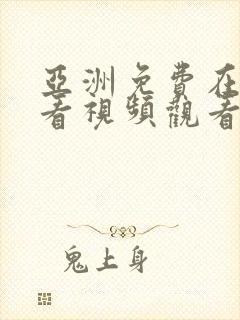 亞洲免費在
看視頻觀看
鬼上身